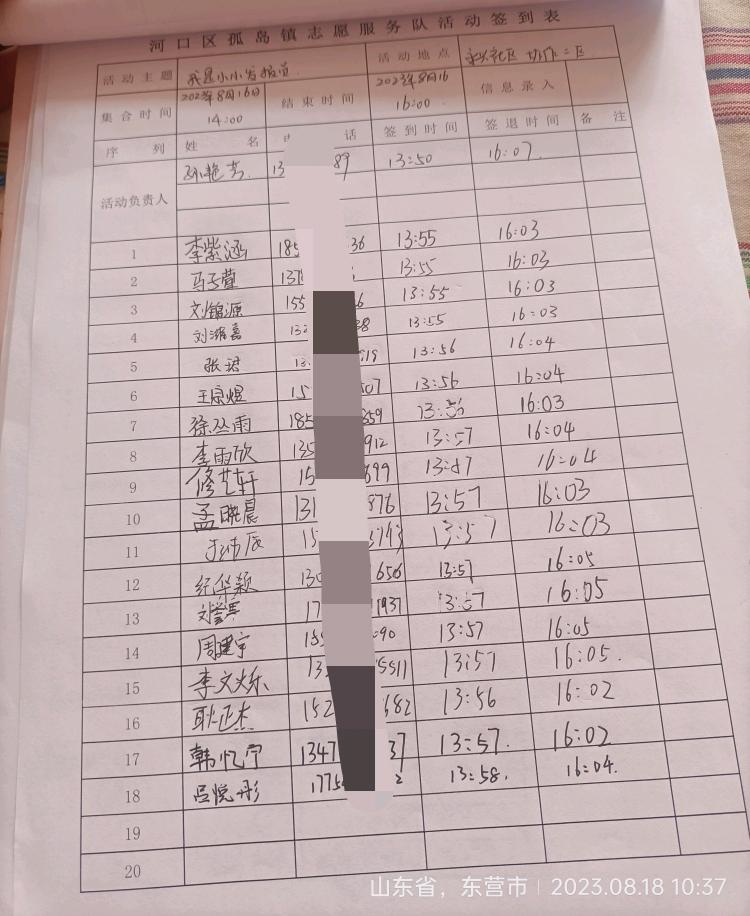 河口区孤岛镇志愿服务队活动签到表
活动主题 我是小小发报员 活动地点 社区 协作二区
集合时间 2023年8月16日 14:00 结束时间 2023年8月16 16:00 信息录入
序列 姓名 话 签到时间 签退时间 备注
活动负责人 13 89 13:50 16:07
1 李紫涵 185 36 13:55 16:03
2 马子萱 137 13:55 16:03
3 刘锦源 155 6 13:55 16:03
4 132 38 13:55 16:03
5 张珺 13 919 13:56 16:04
6 王宗煜 15 507 13:56 16:04
7 徐丛雨 185 359 13:56 16:03
8 李雨欣 135 912 13:57 16:04
9 修艺轩 15 699 13:47 16:04
10 孟晓晨 131 876 13:57 16:03
11 15 3743 13:57 16:03
12 纪华颖 130 656 13:57 16:05
13 17 1937 13:57 16:05
14 周建宇 155 90 13:57 16:05
15 李文烁 13 5511 13:57 16:05.
16 耿正杰 152 682 13:56 16:02
17 韩忆宁 1347 37 13:57. 16:02
18 吕悦彤 1775 2 13:58. 16:04.
19
20
山东省，东营市 | 2023.08.18 10:37